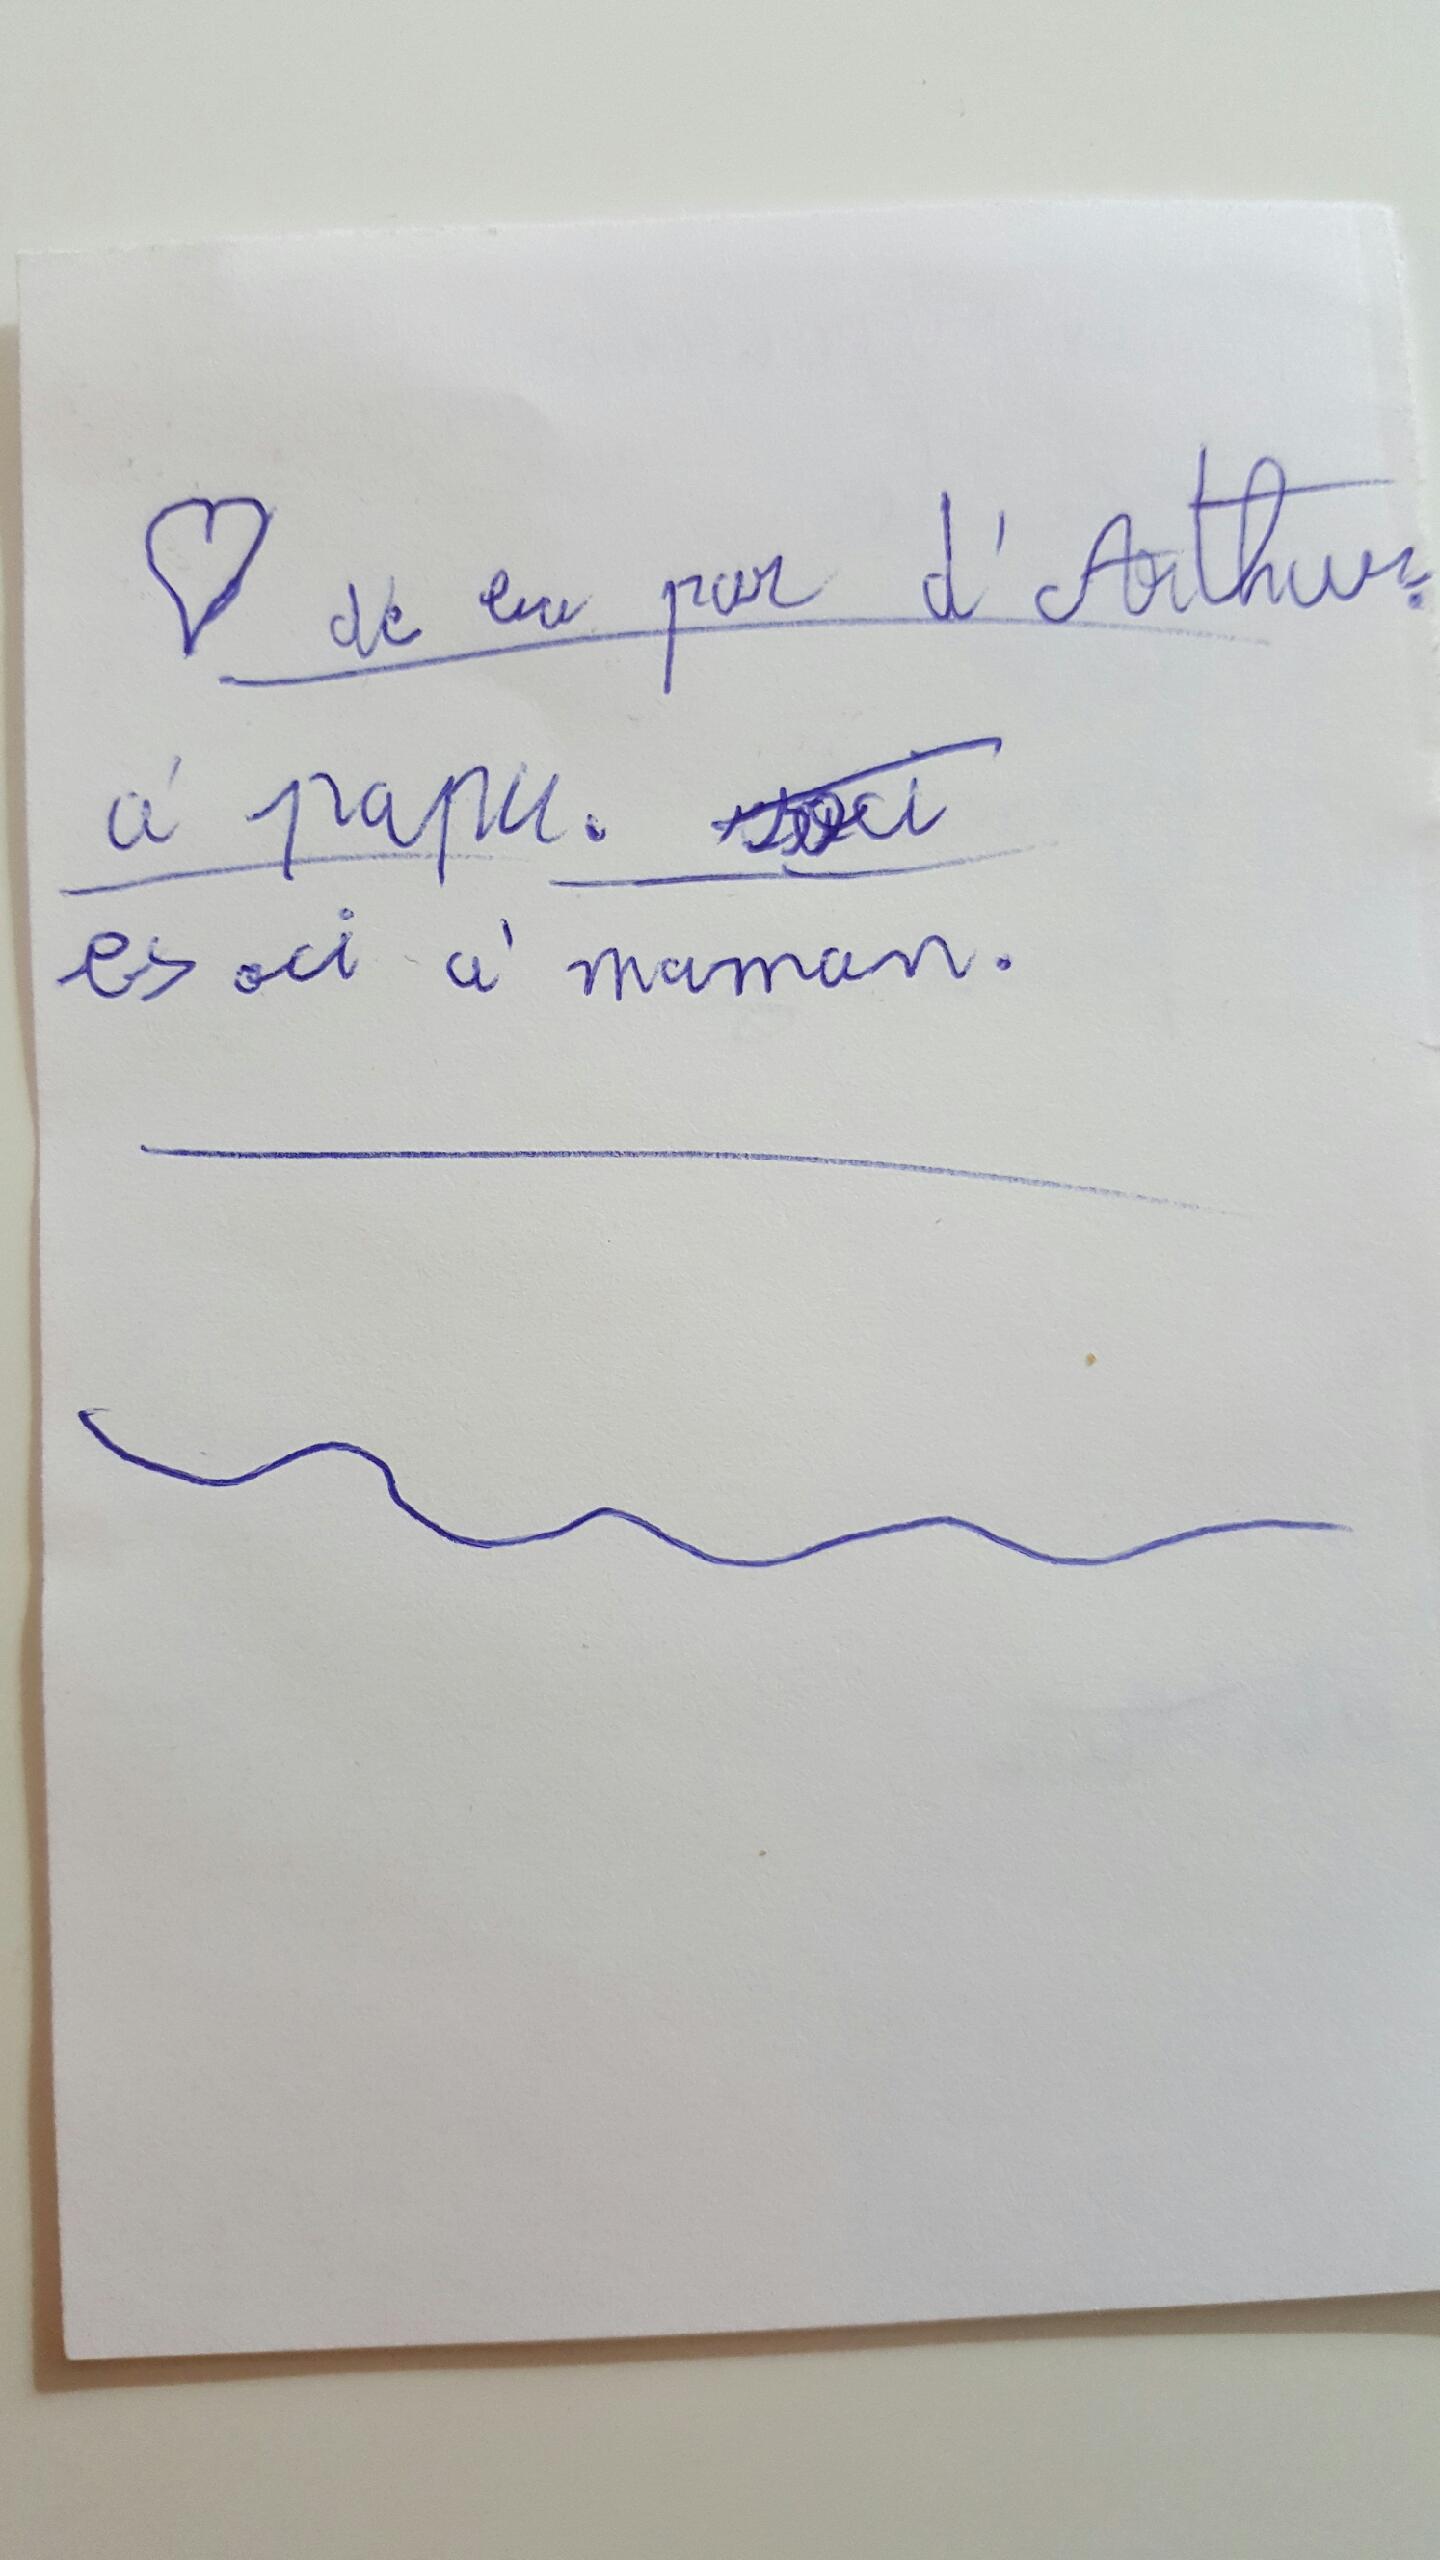 de la par d'Arthur.
à papa.
es oci à maman.